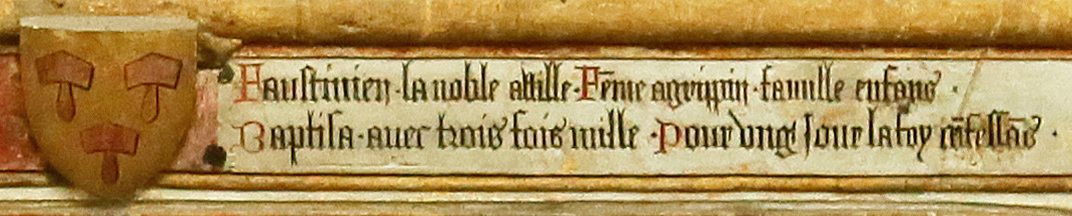 Faustinien · la noble attille · Fēme agripin · famille enfans ·
Baptisa · avec trois fois mille · Pour ung Jour la foy cōfessās ·